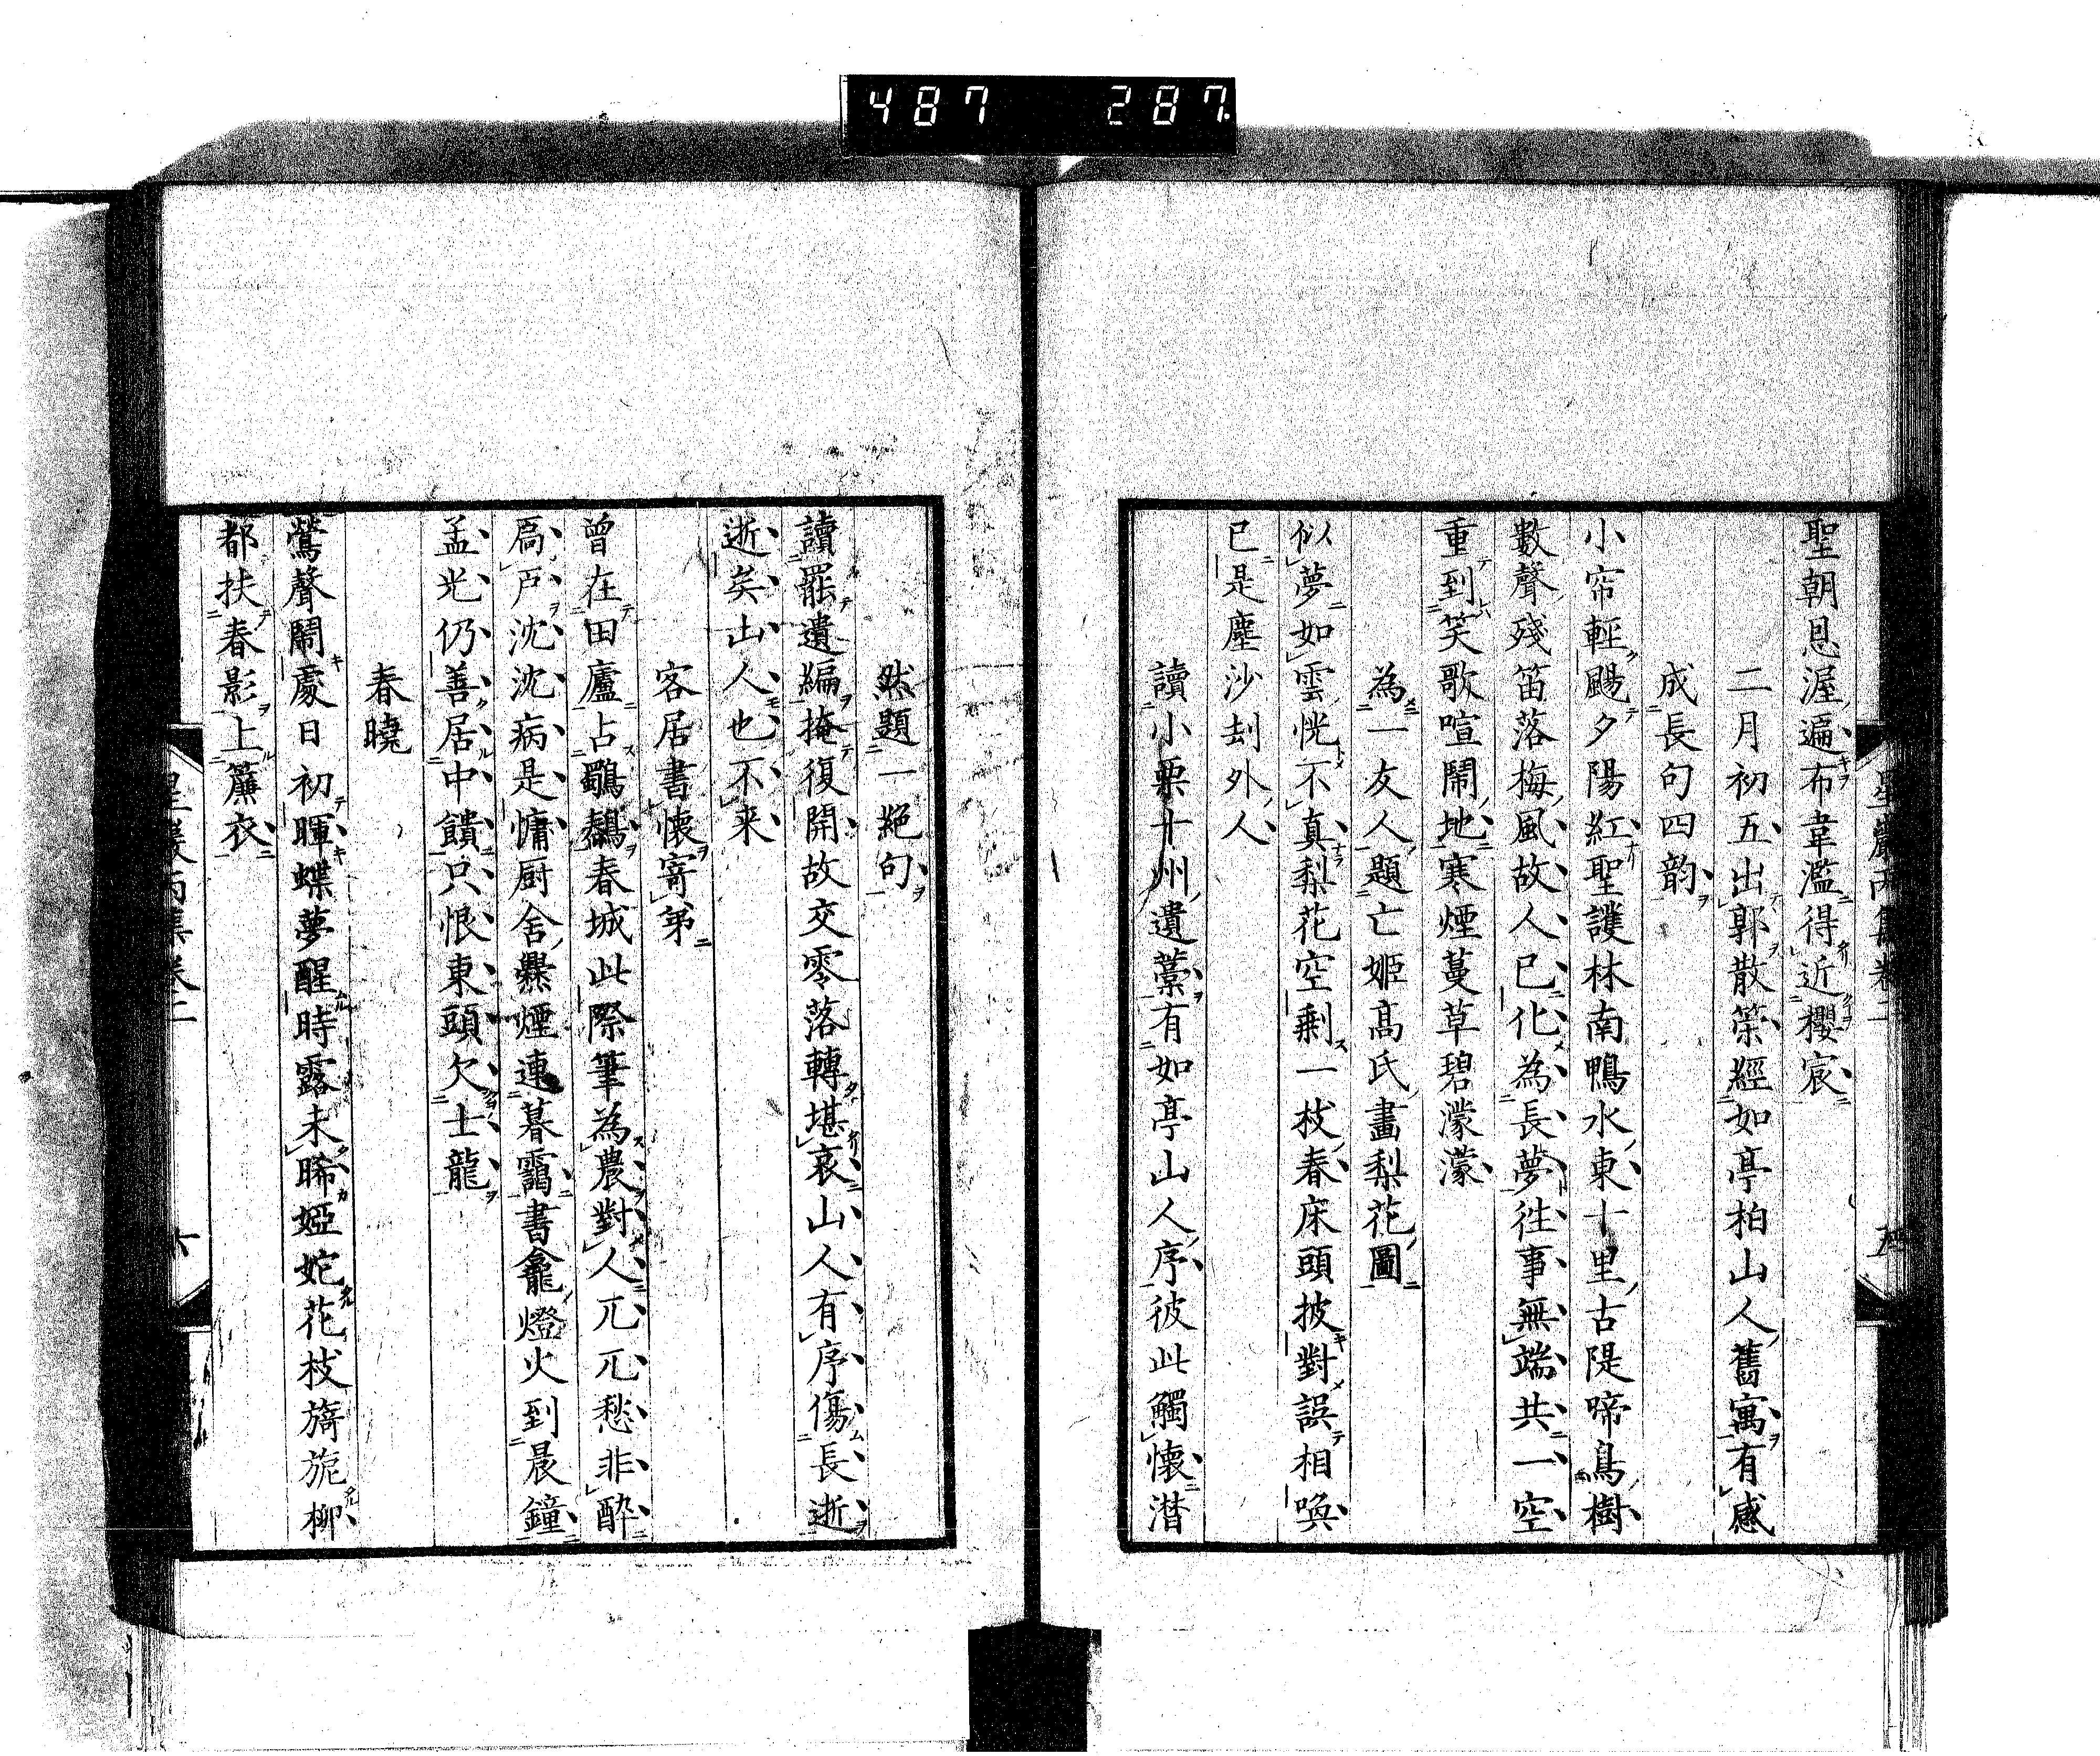 487 287
聖朝恩渥遍布韋濫得近櫻宸
二月初五出郭散策經如亭柏山人舊寓有感
成長句四韵
小帘輕颺夕陽紅聖護林南鴨水東十里古隄啼鳥樹
數聲殘笛落梅風故人已化為長夢徃事無端共一空
重到笑歌喧鬧地寒煙蔓草碧濛濛
為一友人題亡姬高氏畫梨花圖
似夢如雲恍不真梨花空剩一枝春床頭披對誤相喚
已是塵沙刦外人
讀小栗十州遺藁有如亭山人序彼此觸懷潛
然題一絕句
讀罷遺編掩復開故交零落轉堪哀山人有序傷長逝
逝矣山人也不来
客居書懷寄弟
曾在田廬占鷊鷊春城此際筆為農對人兀兀愁非醉
扄戶沈沈病是慵厨舍爨煙連暮靄書龕燈火到晨鐘
孟光仍善居中饋只恨東頭欠士龍
春曉
鶯聲鬧處日初暉蝶夢醒時露未晞婭姹花枝旖旎柳
都扶春影上簾衣
星巖丙集卷二
六